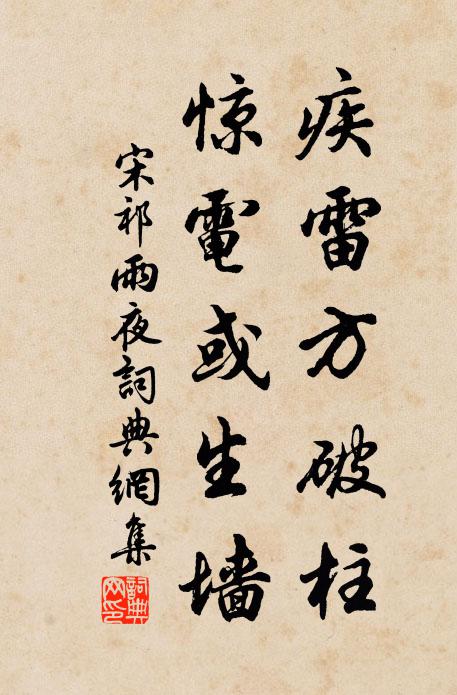 疾雷方破柱
惊電或生墙
宋祁雨夜詞典網集
詞典
网印